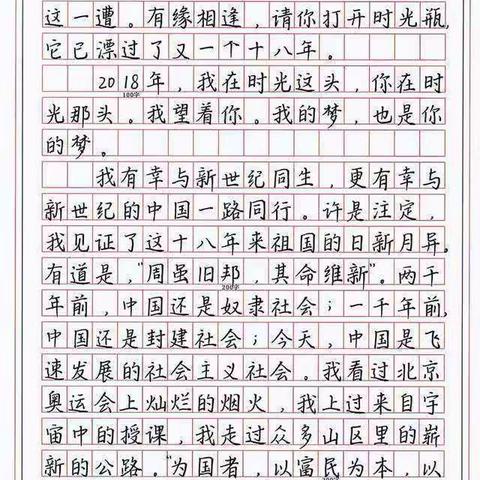 这一遭。有缘相逢，请你打开时光瓶，
它已漂过了又一个十八年。
2018年，我在时光这头，你在时
100字
光那头。我望着你。我的梦，也是你
的梦。
我有幸与新世纪同生，更有幸与
新世纪的中国一路同行。许是注定，
我见证了这十八年来祖国的日新月异，
有道是，“周虽旧邦，其命维新”。两千
200字
年前，中国还是奴隶社会；一千年前，
中国还是封建社会；今天，中国是飞
速发展的社会主义社会。我看过北京
奥运会上灿烂的烟火，我上过来自宇
宙中的授课，我走过众多山区里的崭
新的公路。“为国者，以富民为本，以
300字